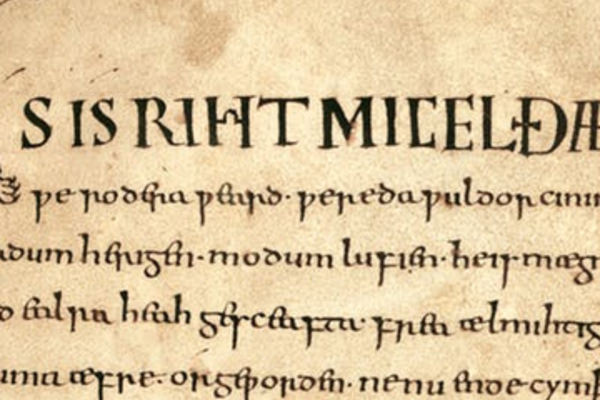 S IS RIHT MICEL ÐÆ
ƿe rodera ƿeard· ƿereda ƿuldorcinin
dum herigen· modum lufien· heis mægn
ealra heah gesceafta· frea ælmihtig
uma æfre· orgeƿorden· nenu ende cymþ